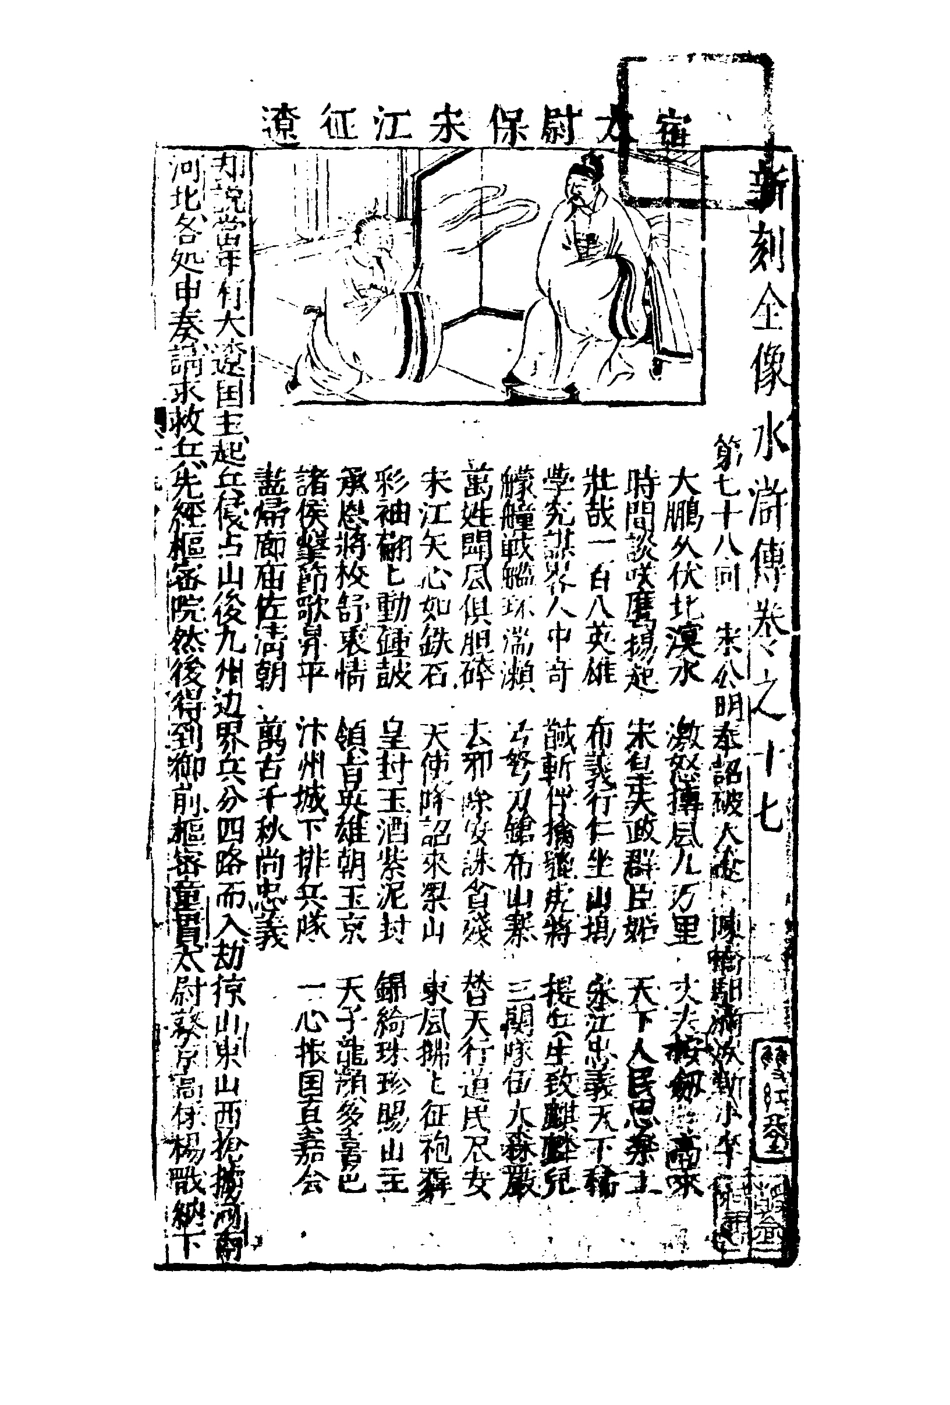 宿太尉保宋江征遼
新刻全像水滸傳卷之十七
第七十八回 宋公明奉詔破大遼 陳橋駅滴淚斬小卒
大鵬久伏北溟水 激怒摶風九万里 丈夫按劍 高
時間談咲鷹揚起 宋皇失政群臣妬 天下人民思樂土
壯哉一百八英雄 布義行仁坐山塢 宋江忠義天下稀
學究謀畧人中奇 馘斬俘擒號虎將 提兵生致麒麟兒
艨艟戰艦環湍瀨 弓弩刀鎗布山寨 三關隊伍大森嚴
萬姓聞風俱胆碎 去邪除姦誅貪殘 替天行道民尽安
宋江矢心如鉄石 天使降詔來梨山 東風拂匕征袍
彩袖翩匕動鍾皷 皇封玉酒紫泥封 錦綺珠珍賜山主
承恩將校舒衷情 領首英雄朝玉京 天子龍顏多喜色
諸侯擊節歌昇平 汴州城下排兵隊 一心振国真嘉会
盡歸廊庙佐清朝 萬古千秋尚忠義
却說當年有大遼国主起兵侵占山後九州边界兵分四路而入刼掠山東山西抢擄河南
河北各処申奏請求救兵先經樞密院然後得到御前樞密童貫太尉蔡京高俅楊戩納下
雙紅堂